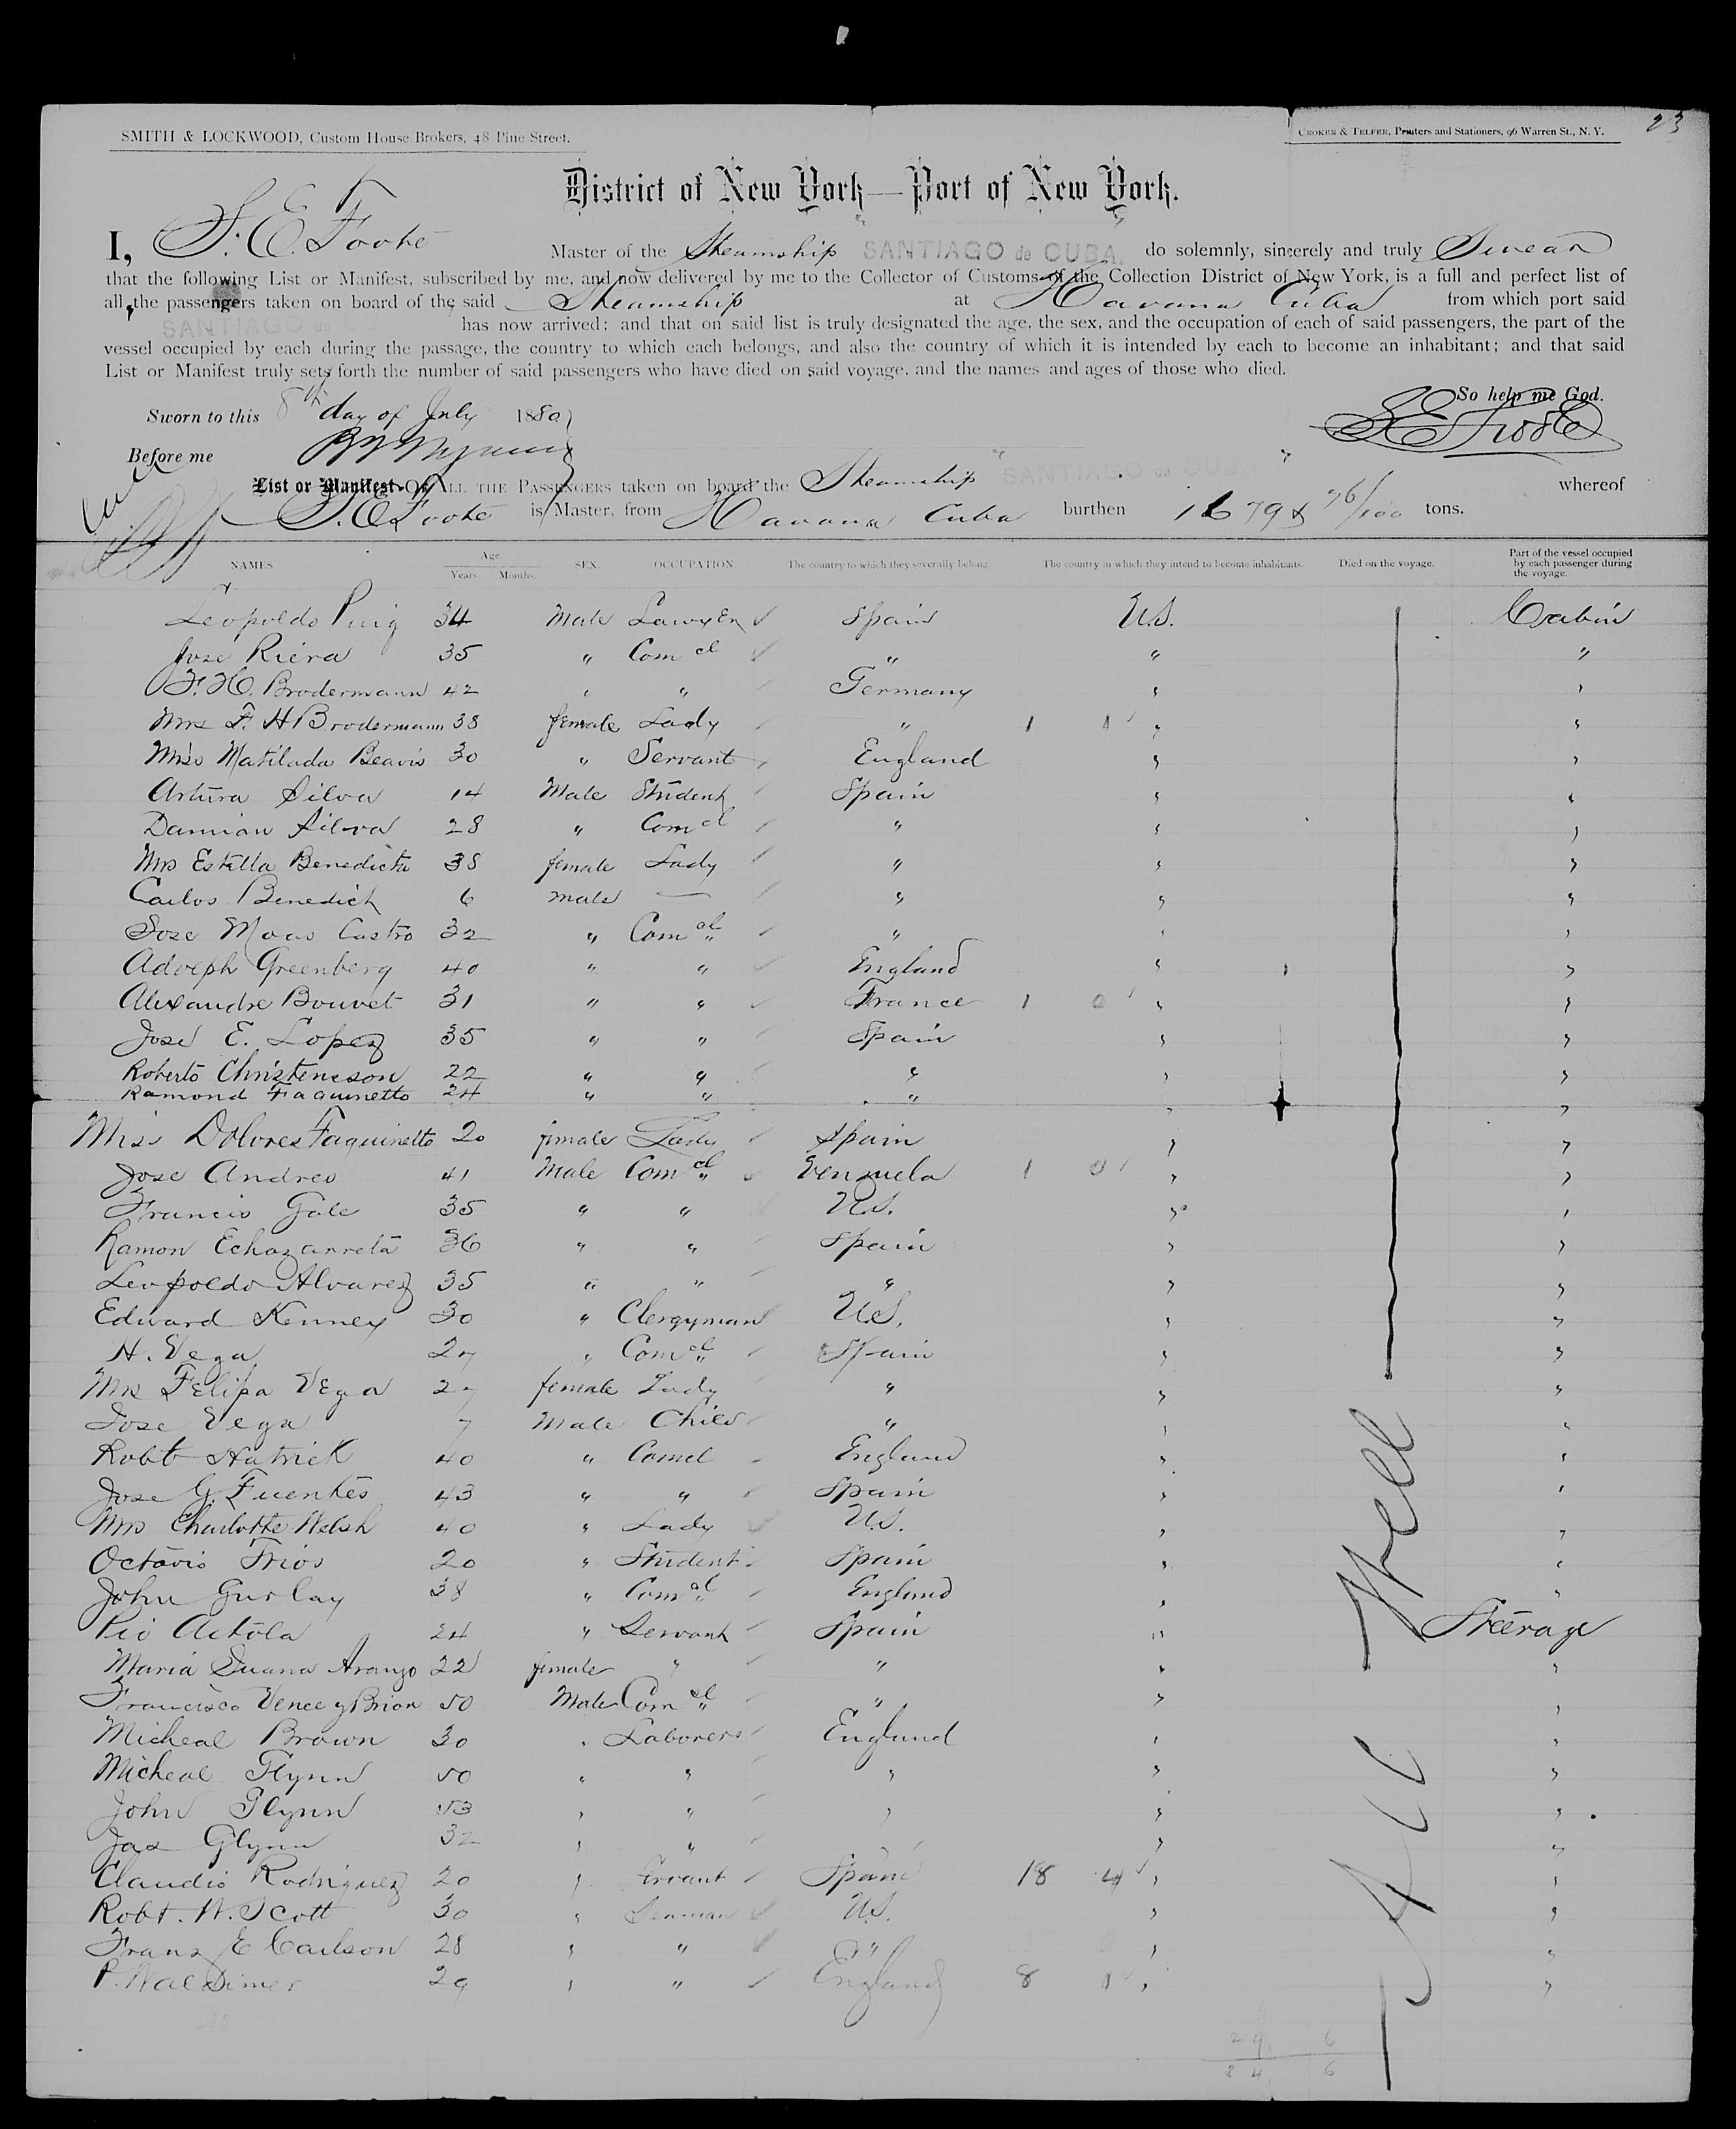 23
SMITH & LOCKWOOD, Custom House Brokers, 48 Pine Street.
CROKER & TELFER, Printers and Stationers, 96 Warren St., N. Y.
District of New York—Port of New York.
I, S. E. Foote Master of the Steamship SANTIAGO de CUBA. do solemnly, sincerely and truly Swear
that the following List or Manifest, subscribed by me, and now delivered by me to the Collector of Customs of the Collection District of New York, is a full and perfect list of
all the passengers taken on board of the said Steamship at Havana Cuba from which port said
SANTIAGO de CU has now arrived; and that on said list is truly designated the age, the sex, and the occupation of each of said passengers, the part of the
vessel occupied by each during the passage, the country to which each belongs, and also the country of which it is intended by each to become an inhabitant; and that said
List or Manifest truly sets forth the number of said passengers who have died on said voyage, and the names and ages of those who died.
So help me God.
Sworn to this 8th day of July 1880 S E Foote
Before me
List or Manifest OF ALL THE PASSENGERS taken on board the Steamship " SANTIAGO de CUBA " whereof
S. E. Foote is Master, from Havana Cuba burthen 1679 & 76/100 tons.
NAMES. Age. Years. Months. SEX. OCCUPATION. The country to which they severally belong. The country in which they intend to become inhabitants. Died on the voyage. Part of the vessel occupied by each passenger during the voyage.
Leopoldo Puig 34 Male Lawyer Spain U.S. Cabin
Jose Riera 35 " Com cl " " "
F. H. Brodermann 42 " " Germany " "
Mrs F. H Brodermann 38 female Lady " 1 1 " "
Miss Matilada Beavis 30 " Servant England " "
Artura Silva 14 Male Student Spain " "
Damian Silva 28 " Com cl " " "
Mrs Estella Benedicta 38 female Lady " " "
Carlos Benedick 6 male — " " "
Jose Maas Castro 32 " Com cl " " "
Adolph Greenberg 40 " " England " "
Alexandre Bouvet 31 " " France 1 0 " "
Jose E. Lopez 35 " " Spain " "
Roberto Christenson 22 " " " " "
Ramond Faquinetto 24 " " " " "
Miss Dolores Faquinetto 20 female Lady Spain " "
Jose Andreo 41 Male Com cl Venzuela 1 0 " "
Francis Gale 35 " " U.S. " "
Ramon Echazarreta 36 " " Spain " "
Leopoldo Alvarez 35 " " " " "
Edward Kenney 30 " Clergyman U.S. " "
N. Vega 27 " Com cl Spain " "
Mrs Felipa Vega 27 female Lady " " "
Jose Vega 7 Male Child " " "
Robt Hatrick 40 " Comcl England " "
Jose G. Fuentes 43 " " Spain " "
Mrs Charlotte Welsh 40 " Lady U.S. " "
Octavio Frios 20 " Student Spain " "
John Gurlay 38 " Com cl England " "
Pio Actola 24 " Servant Spain " Steerage
Maria Juana Arango 22 female " " " "
Francisco Vence y Brion 50 Male Com cl " " "
Micheal Brown 30 " Laborers England " "
Micheal Flynn 50 " " " " "
John Flynn 53 " " " " "
Jas Glynn 32 " " " " "
Claudio Rodriguez 20 " Servant Spain 18 4 " "
Robt. W. Scott 30 " Seaman U.S. " "
Franz E Carlson 28 " " " " "
P. Waldimer 29 " " England 8 1 " "
All Well
29 6
34 6